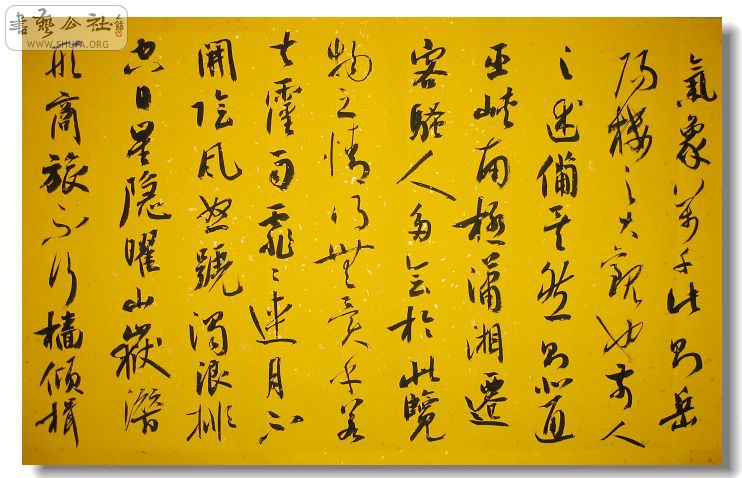 書藝公社
WWW.SHUFA.ORG
氣象萬千此則岳
陽樓之大觀也前人
之述備矣然則北通
巫峽南極瀟湘遷
客騷人多會於此覽
物之情得無異乎若
夫霪雨霏〻連月不
開陰风怒號濁浪排
空日星隐曜山嶽潛
形商旅不行檣傾楫